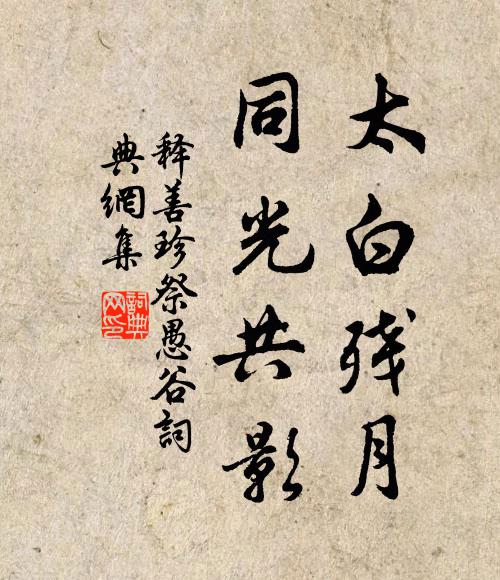 太白残月
同光共影
释善珍祭愚谷詞
典網集
詞典网印